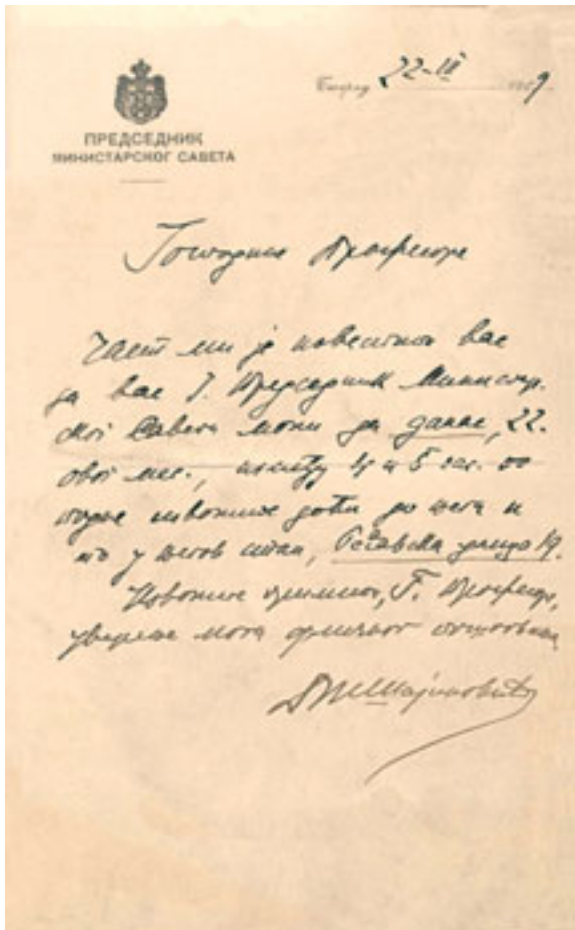 Београд 22-III 1939.
ПРЕДСЕДНИК
МИНИСТАРСКОГ САВЕТА
Господине Професоре
Част ми је известити вас
да вас Г. Председник Министар
ског Савета моли да данас, 22.
овог мес., између 4 и 5 час. по
подне изволите доћи до њега и
то у његов стан, Ресавска улица 19.
Изволите примити, Г. Професоре,
уверење мога одличног поштовања